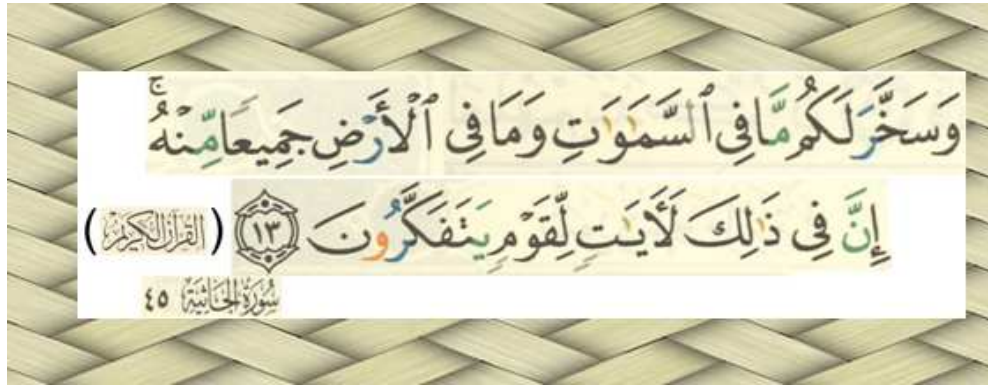 وَسَخَّرَ لَكُم مَّا فِى ٱلسَّمَٰوَٰتِ وَمَا فِى ٱلْأَرْضِ جَمِيعًا مِّنْهُ ۚ
إِنَّ فِى ذَٰلِكَ لَأَيَٰتٍ لِّقَوْمٍ يَتَفَكَّرُونَ ١٣ (القرآن الكريم)
سُورَةُ الجَاثِيَةِ ٤٥